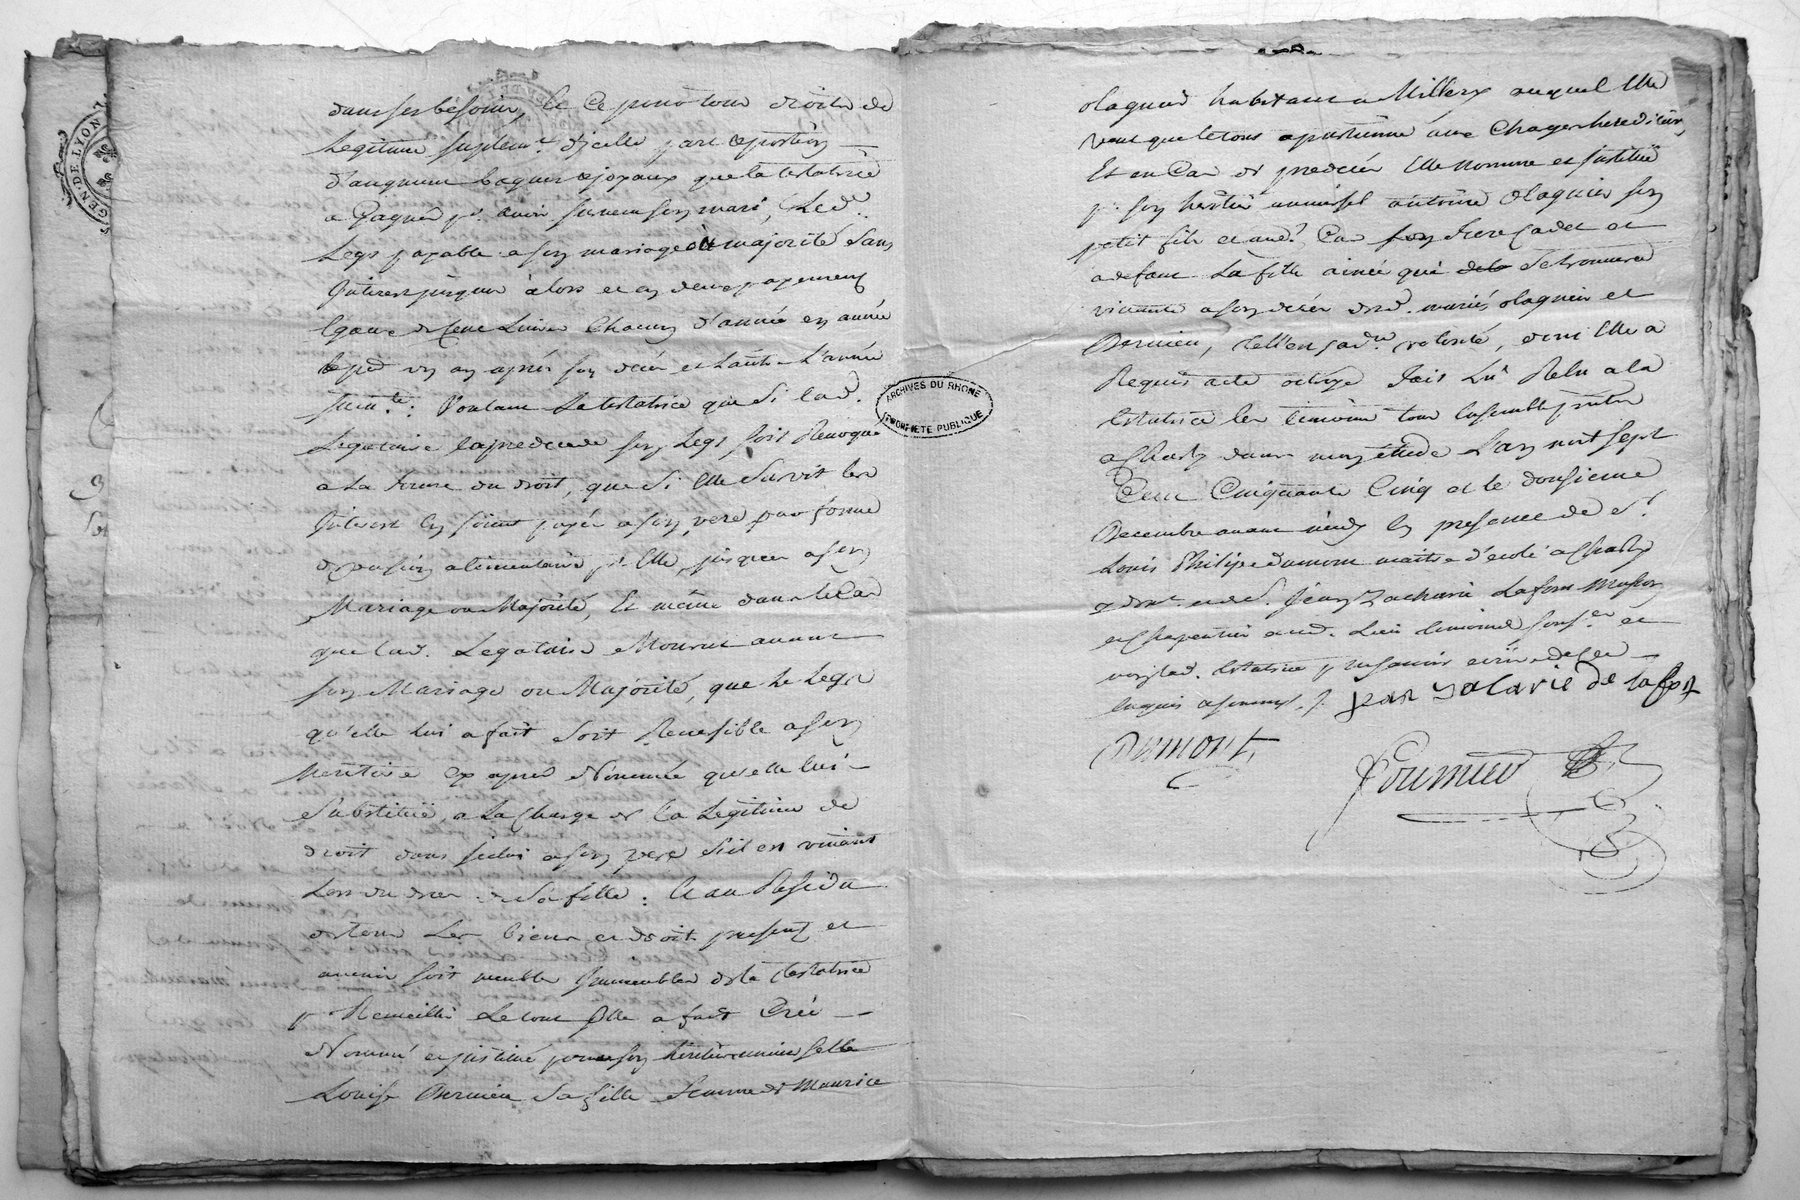 GEN. DE LYON
dans ses besoins, et ce pour tous droits de
Legitime suplemt. d'icelle part et portion
d'augment bagues et joyaux que la testatrice
a Gagnés pr. avoir survecu son mari, Led.
Legs payable a son mariage ou majorité Sans
Interest jusques alors et en deux payements
Egaux de Chacun d'année en année
un an après son décès et l'autre L'année
suivte. : Voulant La testatrice que Si lad.
Legataire la predecede son Legs soit Revoqué
a La forme du droit, que Si Elle Survit les
Interest En soient payés a son pere par forme
de pension alimentaire pr. Elle, jusques a son
Mariage ou Majorité, Et même dans le Cas
que lad. Legataire Mourut avant
son Mariage ou Majorité, que Le Legs
qu'elle lui a fait Soit Reversible a son
heritiere cy après Nommée qu'elle lui
Substitüe, a La Charge de la Legitime de
droit dans icelui a son pere S'il est vivant
Lors du decès de Sa fille : Et au Residu
de tous Les biens et droits presents et
avenir soit meubles Immeubles de la Testatrice
Le tout Elle a fait Créé
Nommé et institué pour son heritiere universelle
Louise Bernieu Sa fille femme de Maurice
ARCHIVES DU RHONE
PROPRIETE PUBLIQUE
olagnier habitant a Millery auquel Elle
veut que le tout apartienne avec Charges hereditaires,
Et en Cas de predecès Elle nomme et institüe
pr. son héritier universel antoine Olagnier son
petit fils et aud. Cas son frere Cadet et
a defaut La fille ainée qui Se trouvera
vivante a son decès desd. mariés olagnier et
Bernieu, telle est sad. volonté, dont Elle a
Requis acte octroyé fait Lu Relu a la
testatrice les temoins tous Ensemblement
a Charly dans mon étude L'an mil sept
Cent Cinquante Cinq et le douzieme
Decembre avant midy En presence de Sr.
Louis Philipe dumont maitre d'ecole a Charly
y demt. et de S. Jean Zacharie Lafont Masson
et Charpentier aud. Lieu temoins sousignés et
non lad. testatrice pr. ne savoir ecrire de ce
Enquis a sommés. /. jean zacarie de lafont
Dumont
Fournieu